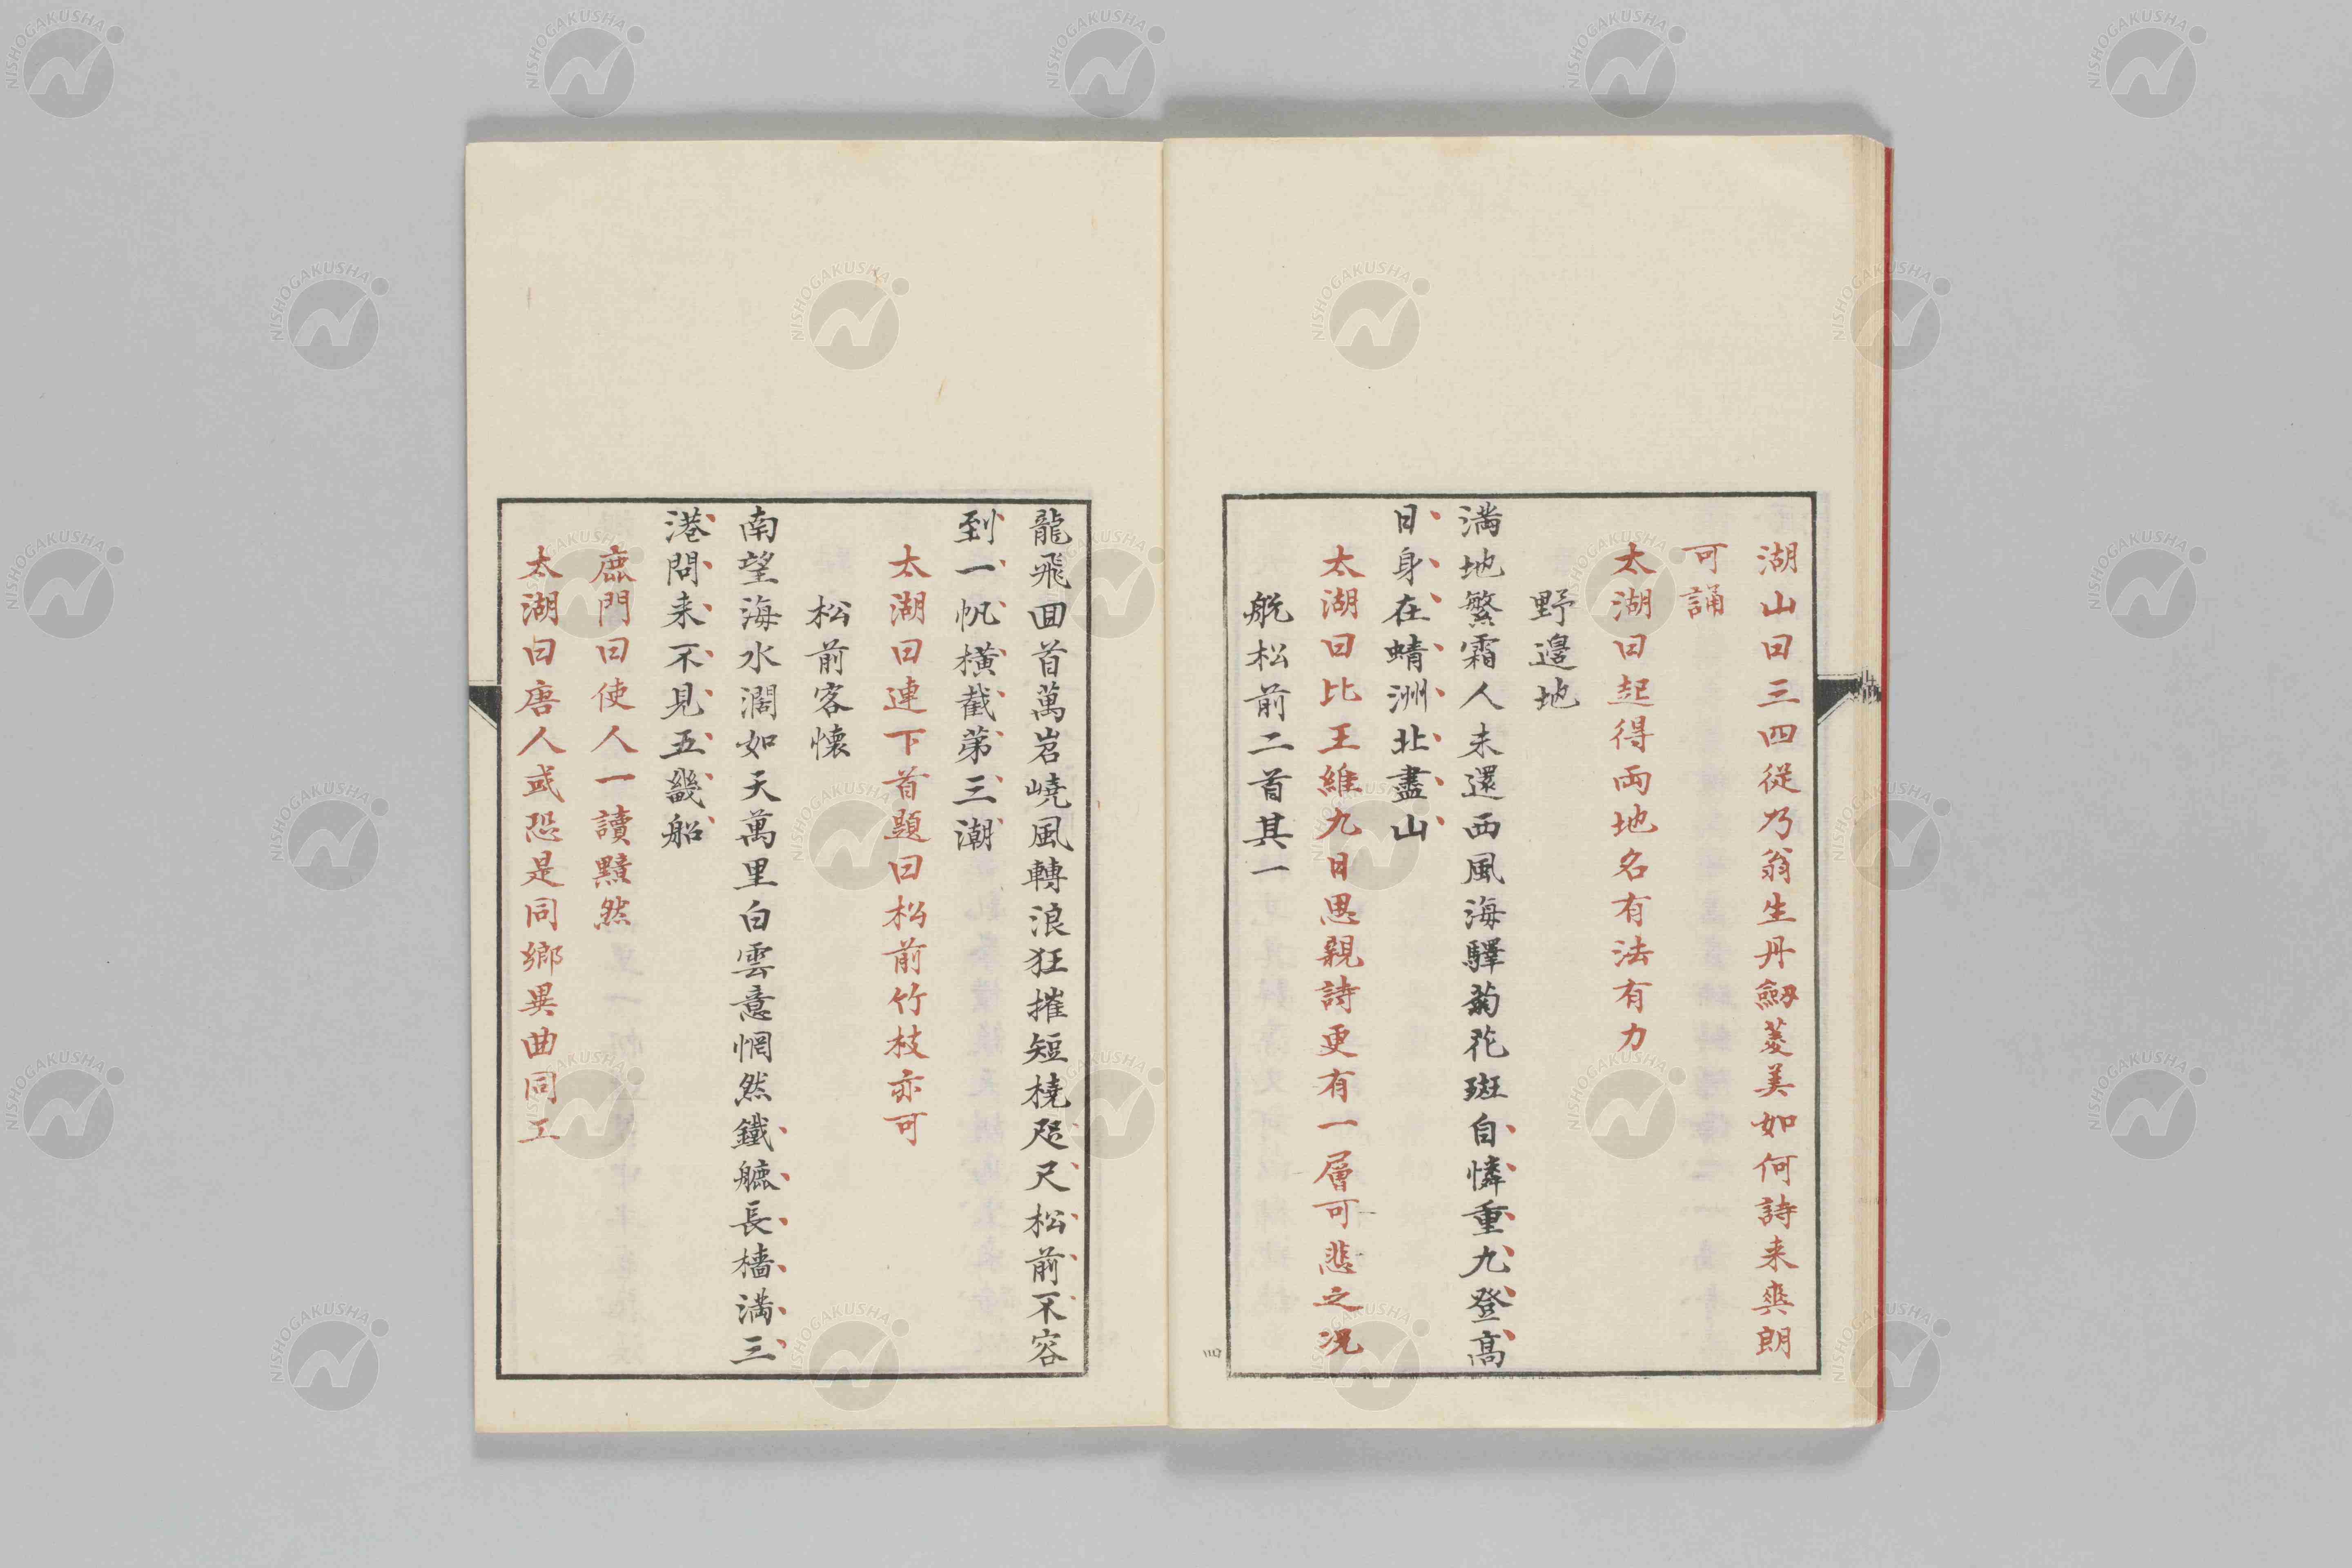 湖山曰三四従乃翁生丹劔菱美如何詩来爽朗
可誦
太湖曰起得両地名有法有力
野邉地
満地繁霜人未還西風海驛菊花斑自憐重九登髙
日身在蜻洲北盡山
太湖曰比王維九日思親詩更有一層可悲之况
舩松前二首其一
龍飛囬首萬岩嶢風轉浪狂摧短橈咫尺松前不容
到一帆横截第三潮
太湖曰連下首題曰松前竹枝亦可
松前客懐
南望海水濶如天萬里白雲意惘然鐵艫長檣満三
港問来不見五畿船
鹿門曰使人一讀黯然
太湖曰唐人或恐是同鄉異曲同工
四
NISHOGAKUSHA